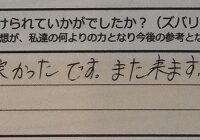 けられていかがでしたか？（ズバリ
想が、私達の何よりの力となり今後の参考とな
良かったです。また来ます。